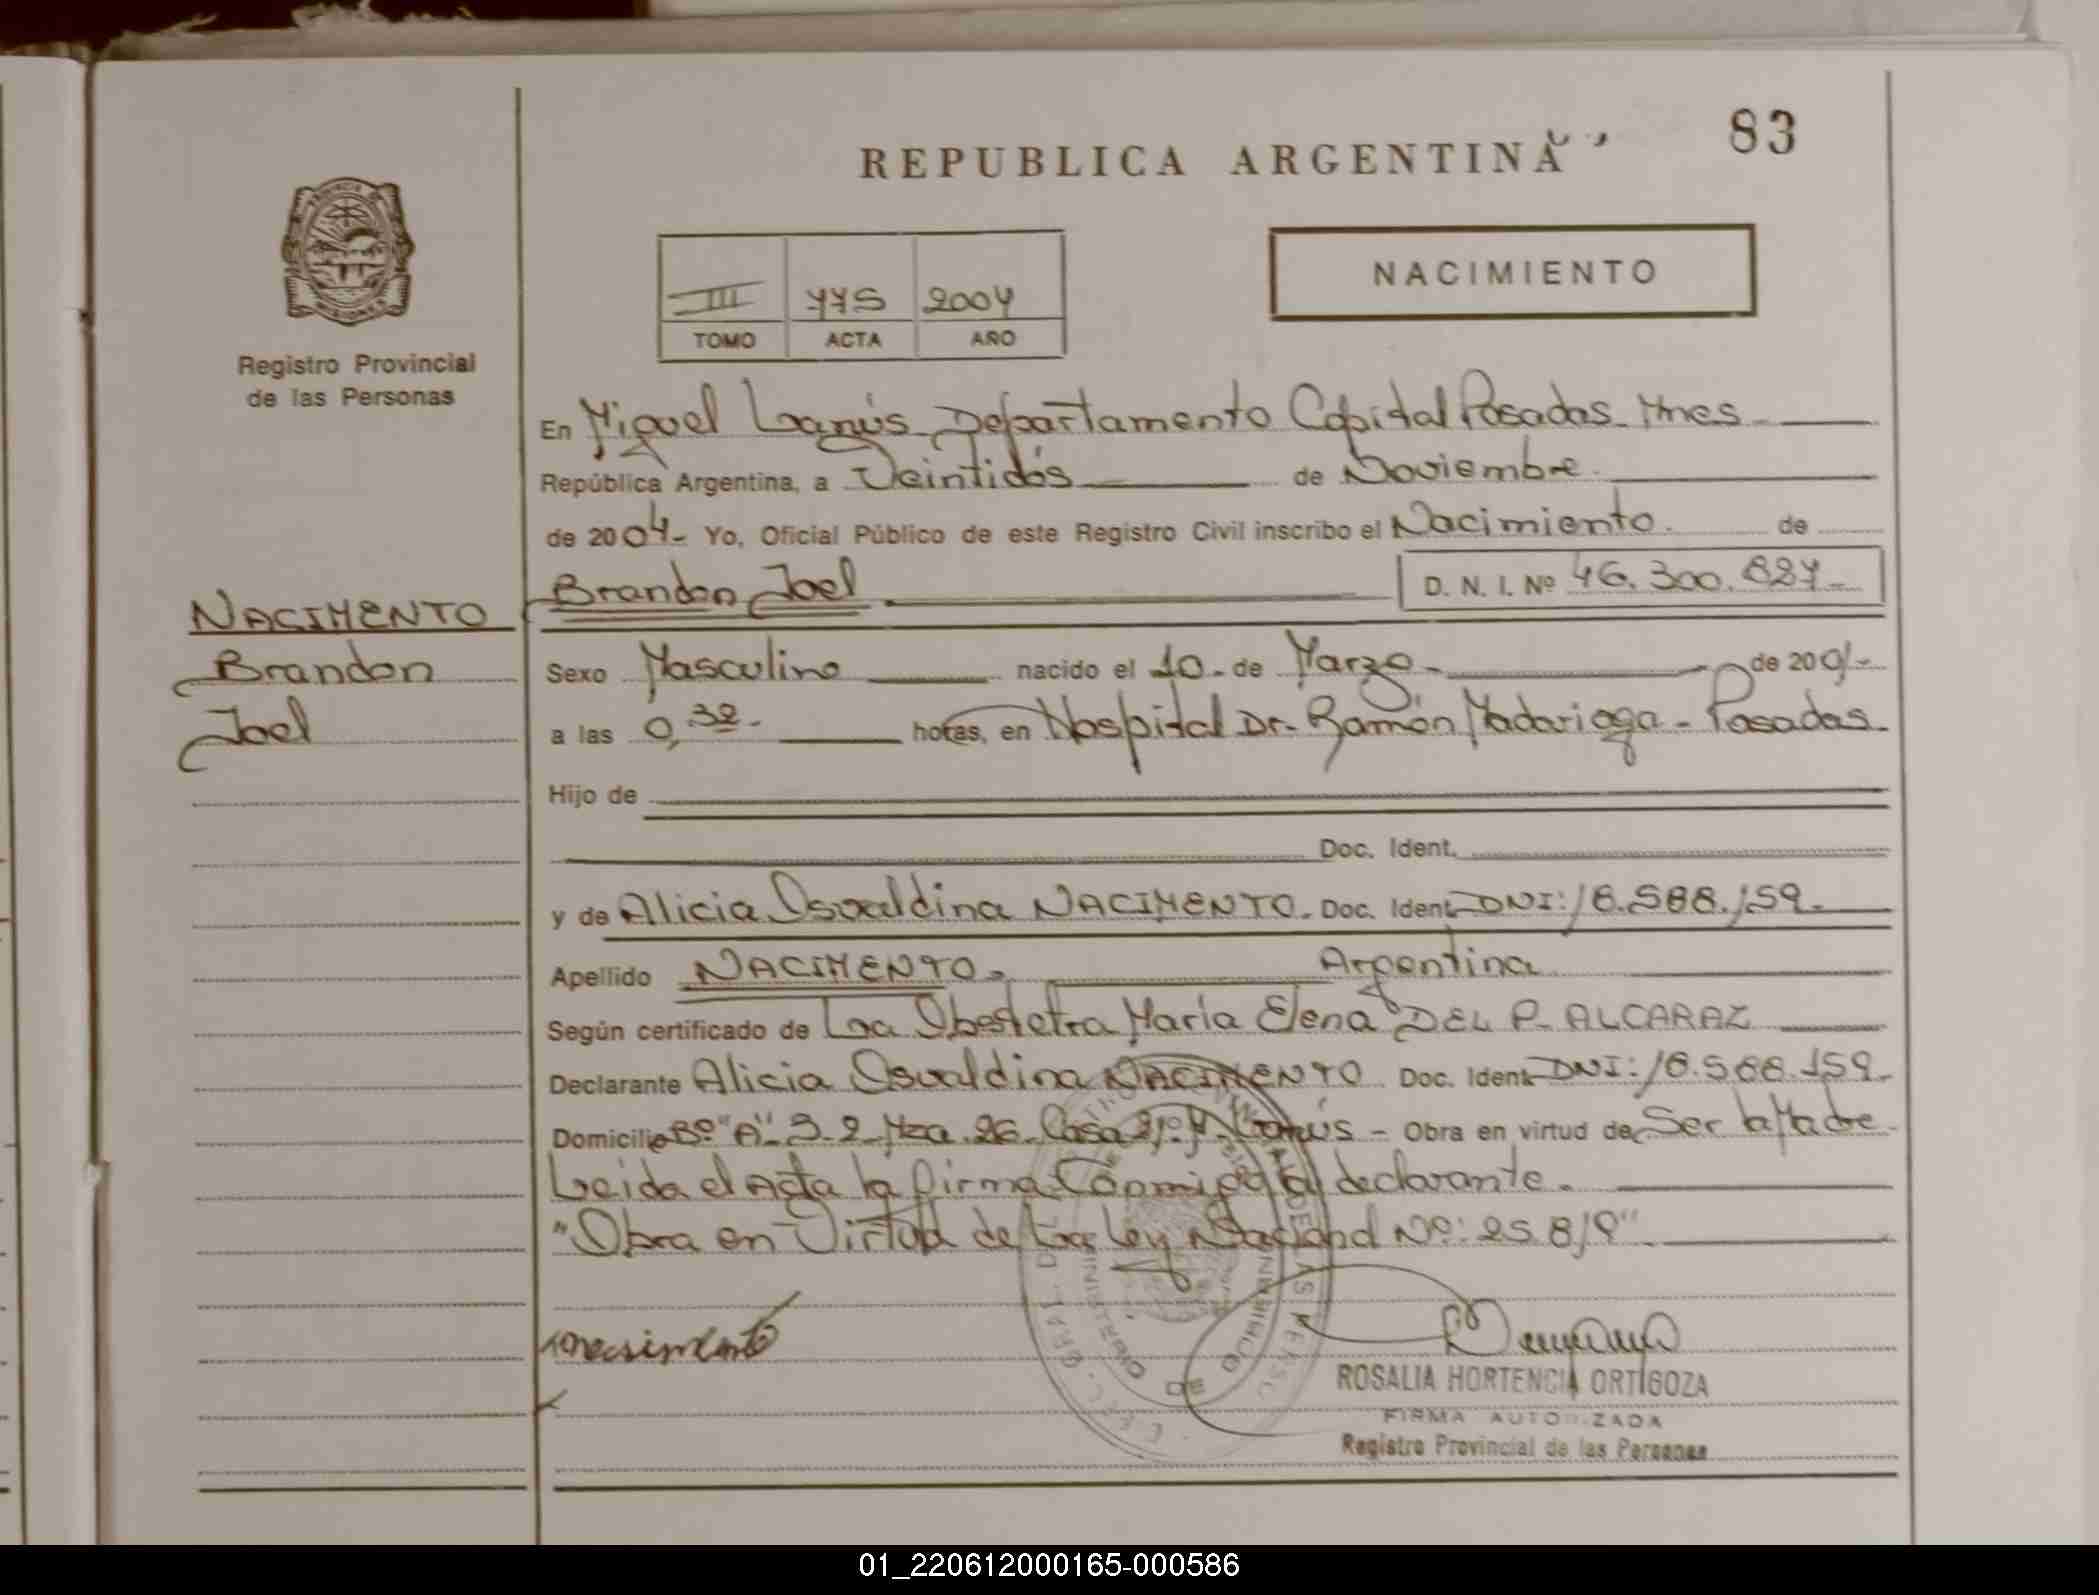 REPUBLICA ARGENTINA
83
III 775 2004
TOMO ACTA AÑO
NACIMIENTO
Registro Provincial
de las Personas
En Miguel Lanús Departamento Capital Posadas Mnes
República Argentina, a Veintidós de Noviembre.
de 2004- Yo, Oficial Público de este Registro Civil inscribo el Nacimiento. de
Brandon Joel D. N. I. Nº 46.300.827
NACIMENTO
Brandon
Joel
Sexo Masculino nacido el 10- de Marzo- de 200
a las 0,32- horas, en Hospital Dr. Ramón Madariaga - Posadas
Hijo de
Doc. Ident.
y de Alicia Osvaldina NACIMENTO. Doc. Ident. DNI: 18.588.159.
Apellido NACIMENTO. Argentina
Según certificado de La Obestetra María Elena DEL P. ALCARAZ
Declarante Alicia Osvaldina NACIMENTO Doc. Ident. DNI: 18.588.159.
Domicilio Bº "A" 3-2 Mza. 26 Casa Lanús - Obra en virtud de Ser la Madre
Leida el Acta la firma Conmigo la declarante.
"Obra en Virtud de la Ley Nacional Nº: 25.819"
ROSALIA HORTENCIA ORTIGOZA
FIRMA AUTORIZADA
Registro Provincial de las Personas
01_220612000165-000586